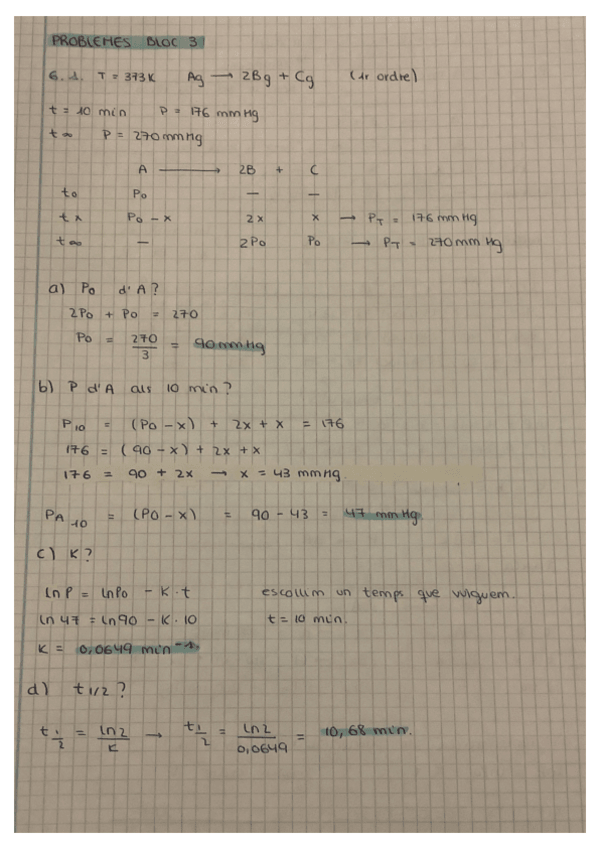 PROBLEMES BLOC 3
6.1. T = 373K Ag → 2Bg + Cg (1r ordre)
t = 10 min P = 176 mmHg
t∞ P = 270 mmHg
A → 2B + C
t0 P0 — —
tx P0 - x 2x x → PT = 176 mmHg
t∞ — 2P0 P0 → PT = 270 mm Hg
a) P0 d'A?
2P0 + P0 = 270
P0 = 270/3 = 90 mmHg
b) P d'A als 10 min?
P10 = (P0 - x) + 2x + x = 176
176 = (90 - x) + 2x + x
176 = 90 + 2x → x = 43 mmHg
PA10 = (P0 - x) = 90 - 43 = 47 mmHg
c) K?
lnP = lnP0 - K·t escollim un temps que vulguem.
ln 47 = ln90 - K·10 t = 10 min.
K = 0,0649 min⁻¹
d) t1/2?
t1/2 = ln2/K → t1/2 = ln2/0,0649 = 10,68 min.